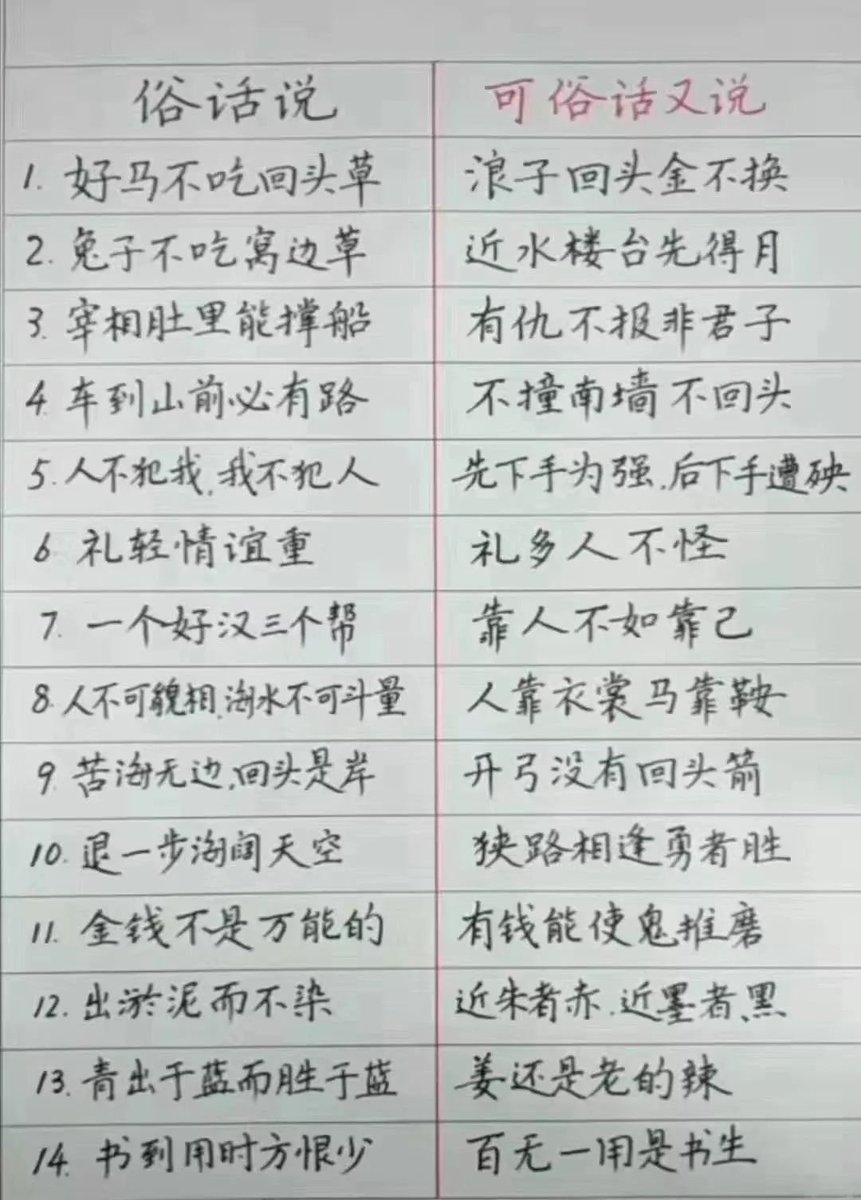 俗话说 可俗话又说
1. 好马不吃回头草 浪子回头金不换
2. 兔子不吃窝边草 近水楼台先得月
3. 宰相肚里能撑船 有仇不报非君子
4. 车到山前必有路 不撞南墙不回头
5. 人不犯我,我不犯人 先下手为强,后下手遭殃
6. 礼轻情谊重 礼多人不怪
7. 一个好汉三个帮 靠人不如靠己
8. 人不可貌相,海水不可斗量 人靠衣裳马靠鞍
9. 苦海无边,回头是岸 开弓没有回头箭
10. 退一步海阔天空 狭路相逢勇者胜
11. 金钱不是万能的 有钱能使鬼推磨
12. 出淤泥而不染 近朱者赤,近墨者黑
13. 青出于蓝而胜于蓝 姜还是老的辣
14. 书到用时方恨少 百无一用是书生